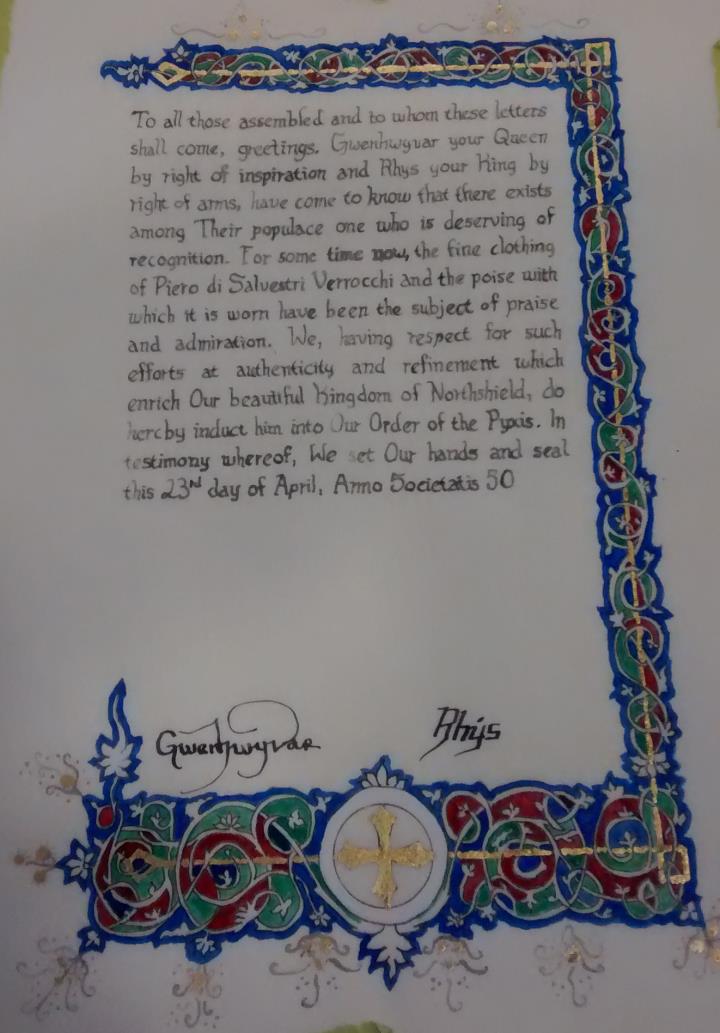 To all those assembled and to whom these letters
shall come, greetings. Gwenhwyvar your Queen
by right of inspiration and Rhys your King by
right of arms, have come to know that there exists
among Their populace one who is deserving of
recognition. For some time now, the fine clothing
of Piero di Salvestri Verrocchi and the poise with
which it is worn have been the subject of praise
and admiration. We, having respect for such
efforts at authenticity and refinement which
enrich Our beautiful Kingdom of Northshield, do
hereby induct him into Our Order of the Pyxis. In
testimony whereof, We set Our hands and seal
this 23ʳᵈ day of April, Anno Societatis 50
Gwenhwyvar Rhys